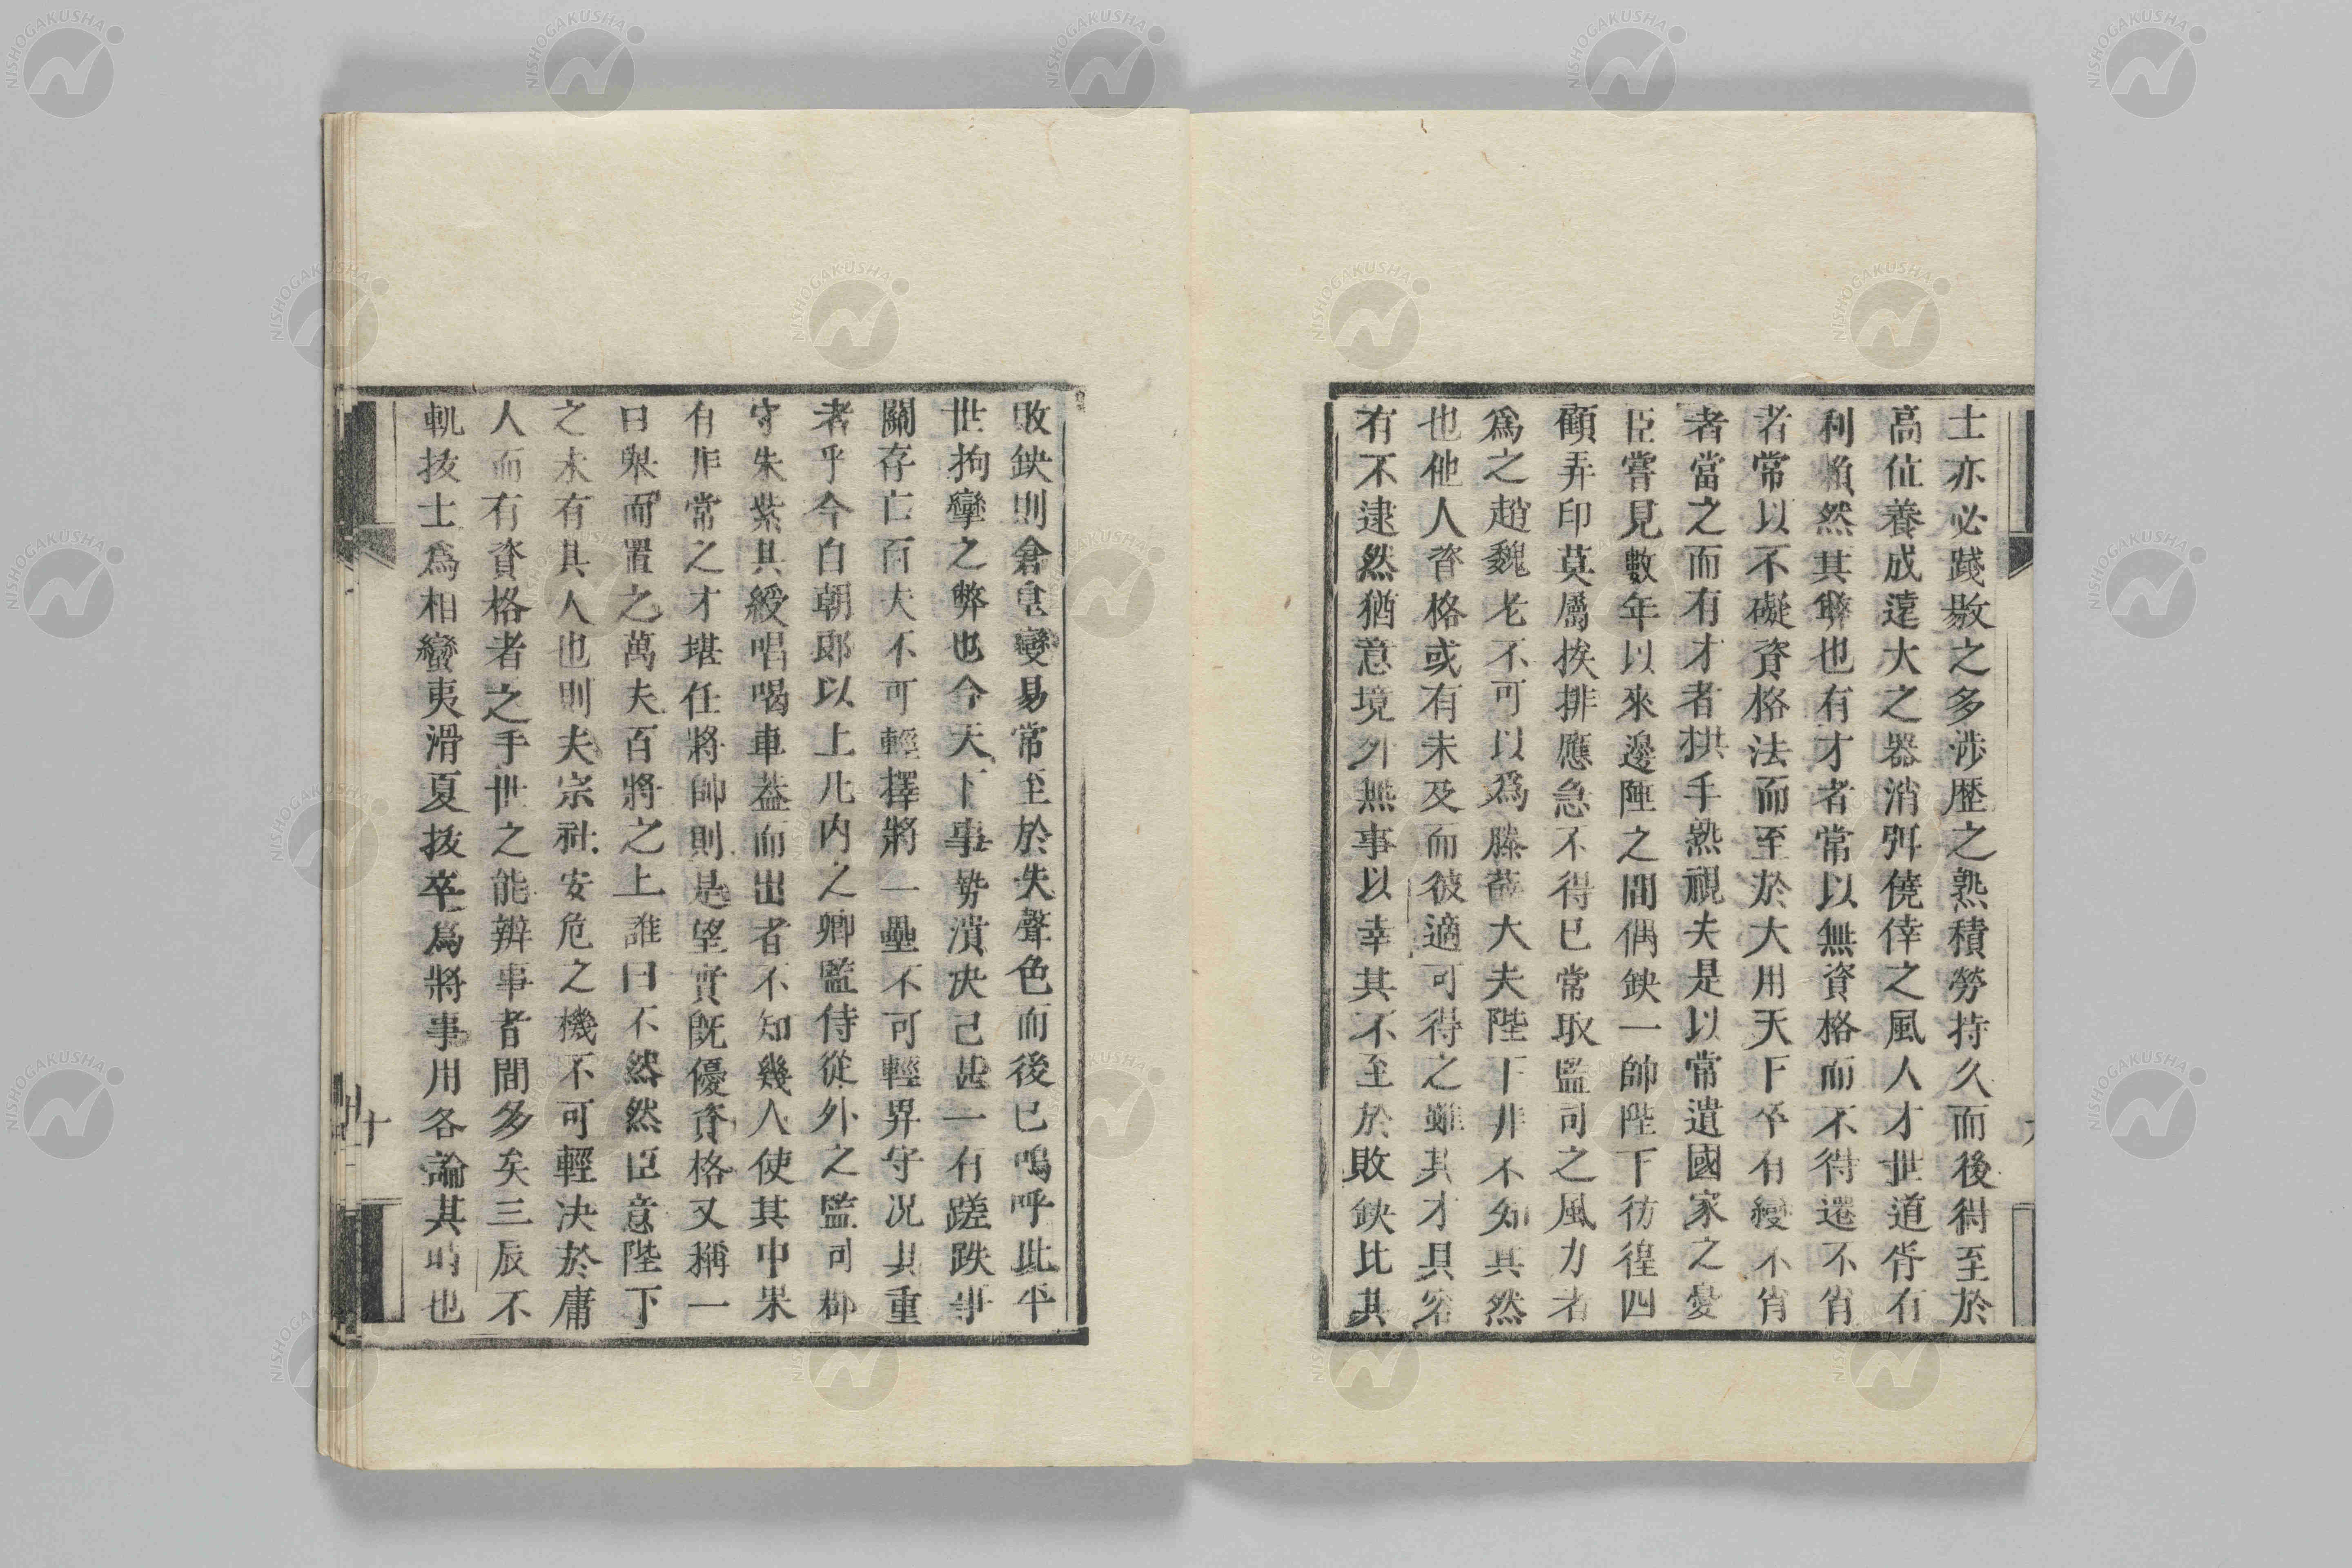 士亦必踐敭之多涉歷之熟積勞持久而後得至於
高位養成遠大之器消弭僥倖之風人才世道胥有
利賴然其弊也有才者常以無資格而不得遷不肖
者常以不礙資格法而至於大用天下卒有變不肖
者當之而有才者拱手熟視夫是以常遺國家之憂
臣嘗見數年以來邊陲之間偶缺一帥陛下彷徨四
顧弄印莫屬挨排應急不得已常取監司之風力者
爲之趙魏老不可以爲滕薛大夫陛下非不知其然
也他人資格或有未及而彼適可得之雖其才具容
有不逮然猶意境外無事以幸其不至於敗缺比其
敗缺則倉皇變易常至於失聲色而後已嗚呼此平
世拘攣之弊也今天下事勢潰決已甚一有蹉跌事
關存亡百夫不可輕擇將一壘不可輕畀守况其重
者乎今自朝郎以上凡內之卿監侍從外之監司郡
守朱紫其綬唱喝車蓋而出者不知幾人使其中果
有非常之才堪任將帥則是望實旣優資格又稱一
日舉而置之萬夫百將之上誰曰不然然臣意陛下
之未有其人也則夫宗社安危之機不可輕決於庸
人而有資格者之手世之能辦事者間多矣三辰不
軌拔士爲相蠻夷滑夏拔卒爲將事用各論其時也
十
NISHOGAKUSHA